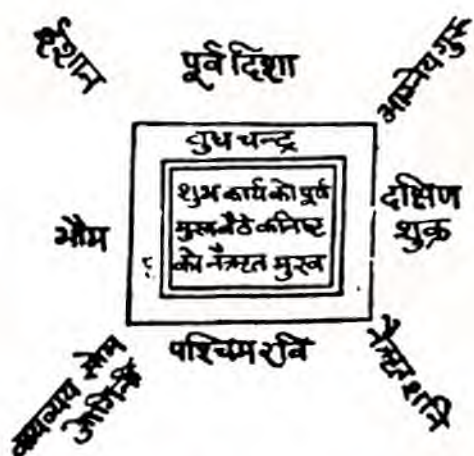 ईशान
पूर्व दिशा
आग्नेय गुरु
वुध चन्द्र
शुभ कार्य को पूर्व
मुख बैठे कनिष्ट
को नैऋत मुख
भौम
दक्षिण
शुक्र
पश्चिम रवि
सोम
नैऋत शनि